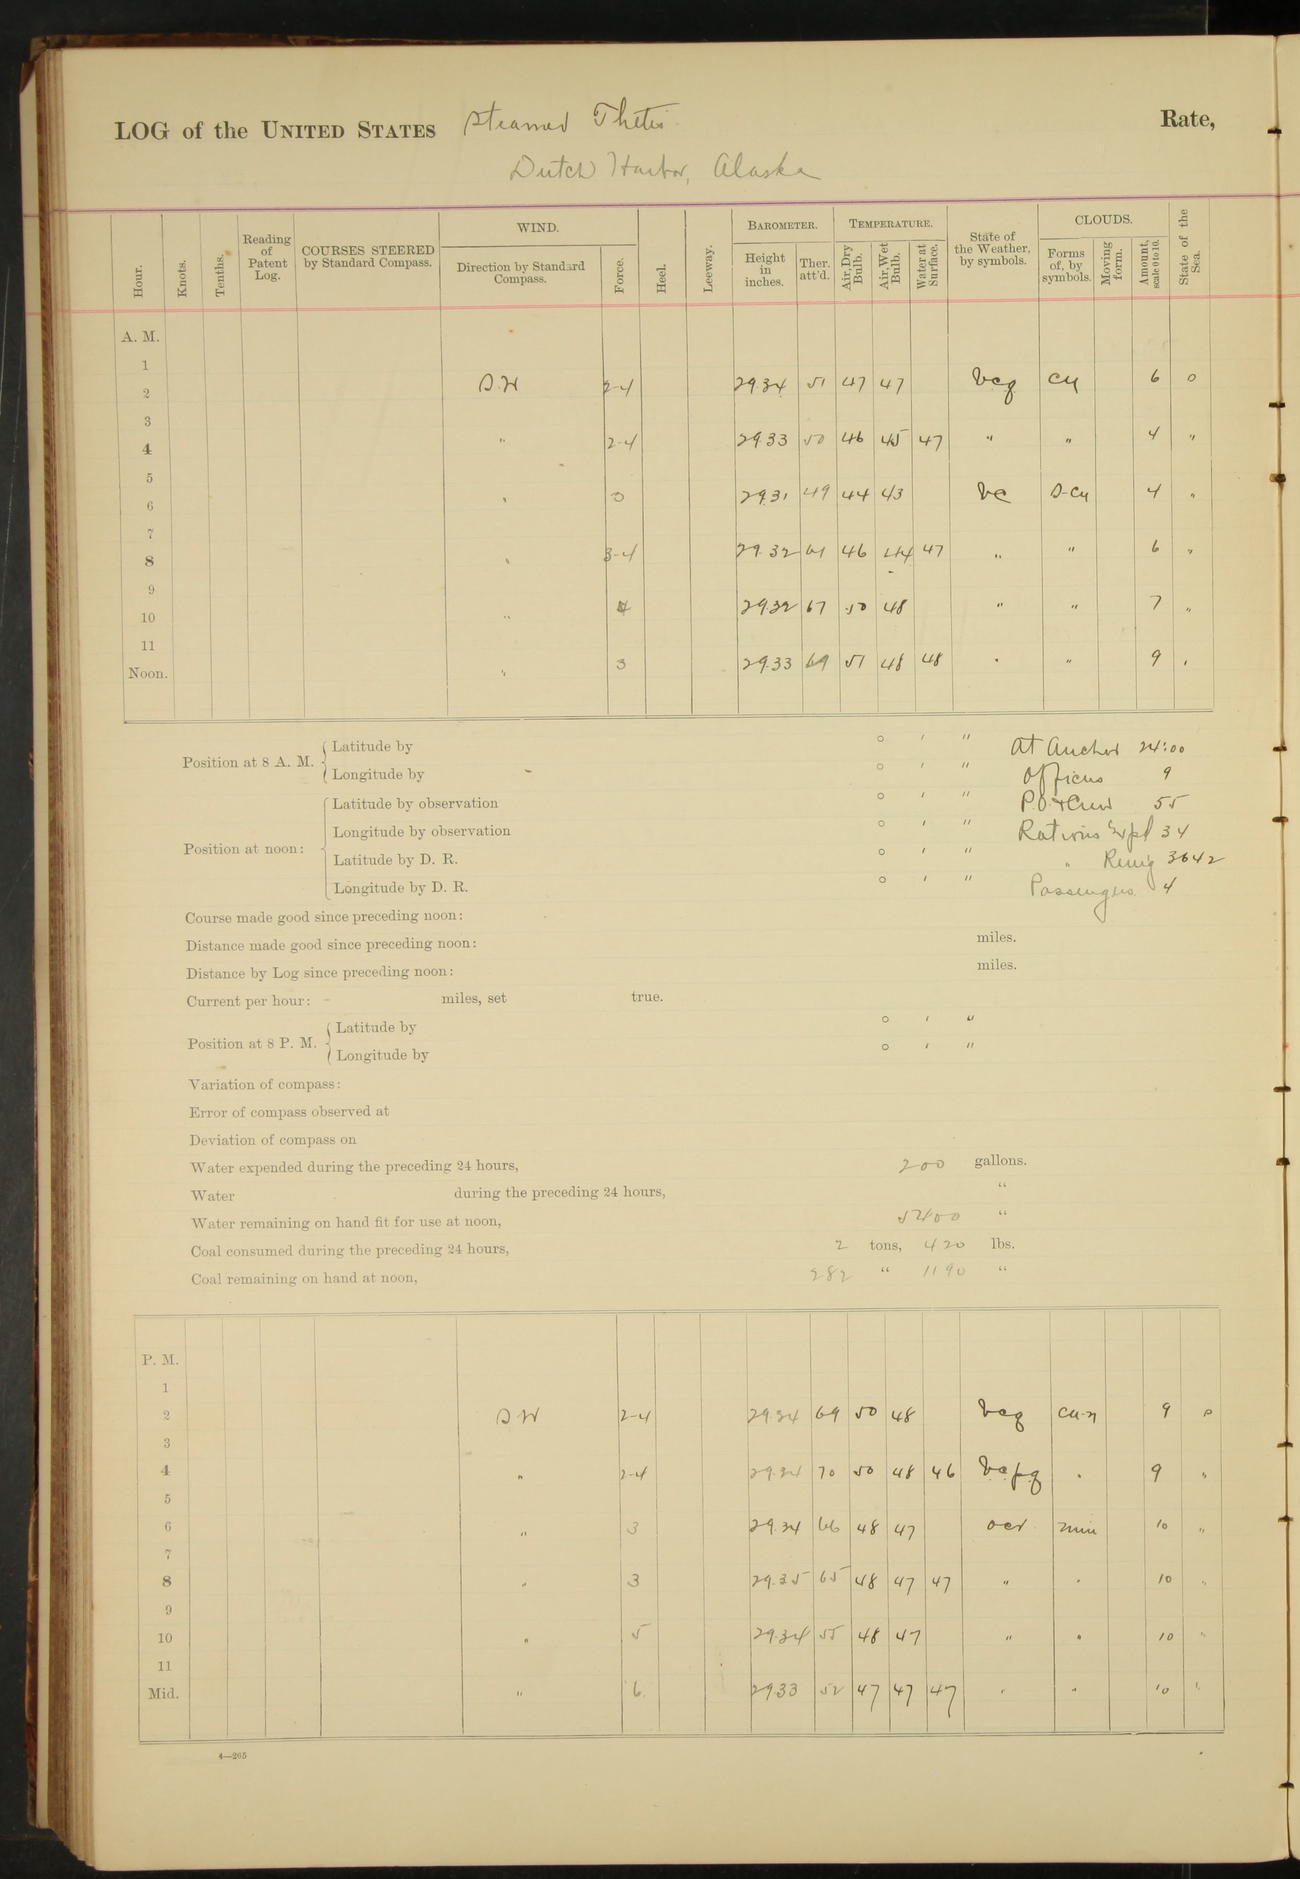 LOG of the UNITED STATES Steamer Thetis Rate,
Dutch Harbor, Alaska
Hour. Knots. Tenths. Reading of Patent Log. COURSES STEERED by Standard Compass. WIND. Direction by Standard Compass. Force. Heel. Leeway. BAROMETER. Height in inches. Ther. att'd. TEMPERATURE. Air, Dry Bulb. Air, Wet Bulb. Water at Surface. State of the Weather, by symbols. CLOUDS. Forms of, by symbols. Moving form. Amount, scale 0 to 10. State of the Sea.
A. M.
1
2 S.W 2-4 29.34 51 47 47 bcq Cu 6 0
3
4 " 2-4 29.33 50 46 45 47 " " 4 "
5
6 " 0 29.31 49 44 43 bc S-Cu 4 "
7
8 " 3-4 29.32 61 46 44 47 " " 6 "
9
10 " 4 29.32 67 50 48 " " 7 "
11
Noon. " 3 29.33 69 51 48 48 " " 9 "
Position at 8 A. M. Latitude by ° ′ ″ At Anchor 24:00
Longitude by ° ′ ″ Officers 9
Position at noon: Latitude by observation ° ′ ″ P.O. & Crew 55
Longitude by observation ° ′ ″ Rations Expd 34
Latitude by D. R. ° ′ ″ " Rem'g 3642
Longitude by D. R. ° ′ ″ Passengers 4
Course made good since preceding noon:
Distance made good since preceding noon: miles.
Distance by Log since preceding noon: miles.
Current per hour: miles, set true.
Position at 8 P. M. Latitude by ° ′ ″
Longitude by ° ′ ″
Variation of compass:
Error of compass observed at
Deviation of compass on
Water expended during the preceding 24 hours, 200 gallons.
Water during the preceding 24 hours, "
Water remaining on hand fit for use at noon, 5400 "
Coal consumed during the preceding 24 hours, 2 tons, 420 lbs.
Coal remaining on hand at noon, 282 " 1190 "
P. M.
1
2 S.W 2-4 29.34 69 50 48 bcq Cu-n 9 0
3
4 " 2-4 29.34 70 50 48 46 bcpq " 9 "
5
6 " 3 29.34 66 48 47 ocr nim 10 "
7
8 " 3 29.35 65 48 47 47 " " 10 "
9
10 " 5 29.34 55 48 47 " " 10 "
11
Mid. " 6 2933 52 47 47 47 " " 10 "
4—265